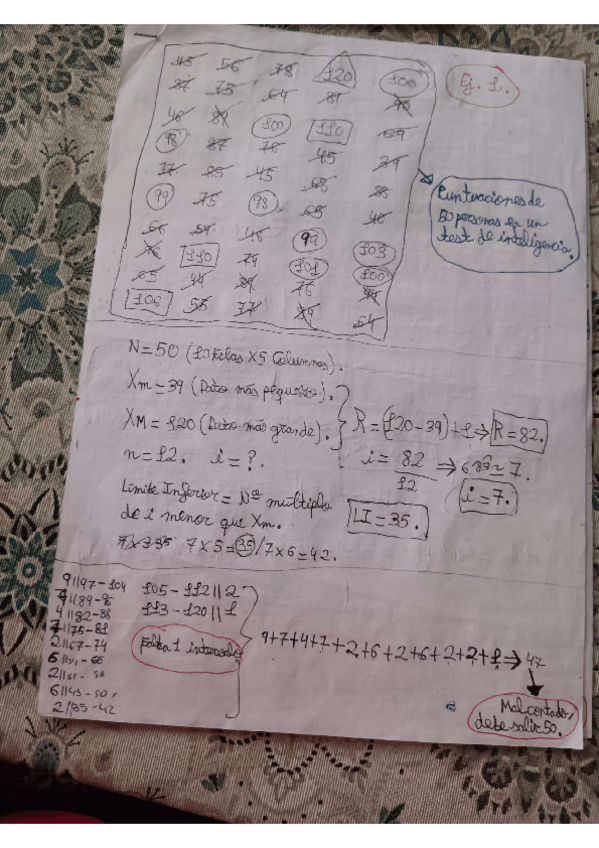 45 56 78 120 100
Ej. 1.
87 75 64 81
46 89 100 110
98 87 78 45 39
77 85 45 65 88
99 75 98 65 40
Puntuaciones de
50 personas en un
test de inteligencia.
66 48 99 103
110 79 101 100
65 44 76
106 55 77 79 64
N=50 (10 Filas X5 Columnas).
Xm=39 (Dato más pequeño).
XM=120 (Dato más grande).
R=(120-39)+1⇒ R=82.
n=12. i=?.
i= 82/12 ⇒ 7.
i=7.
Límite Inferior= Nº múltiplo
de i menor que Xm.
LI=35.
7x5=35/7x6=42.
9||97-104 105-112||2
7||89-96 113-120||1
4||82-88
7||75-81
2||67-74 Falta 1 intervalo
9+7+4+7+2+6+2+6+2+2+1⇒47
6||59-66
2||51-58
6||43-50
2||35-42
Mal contado,
debe salir 50.